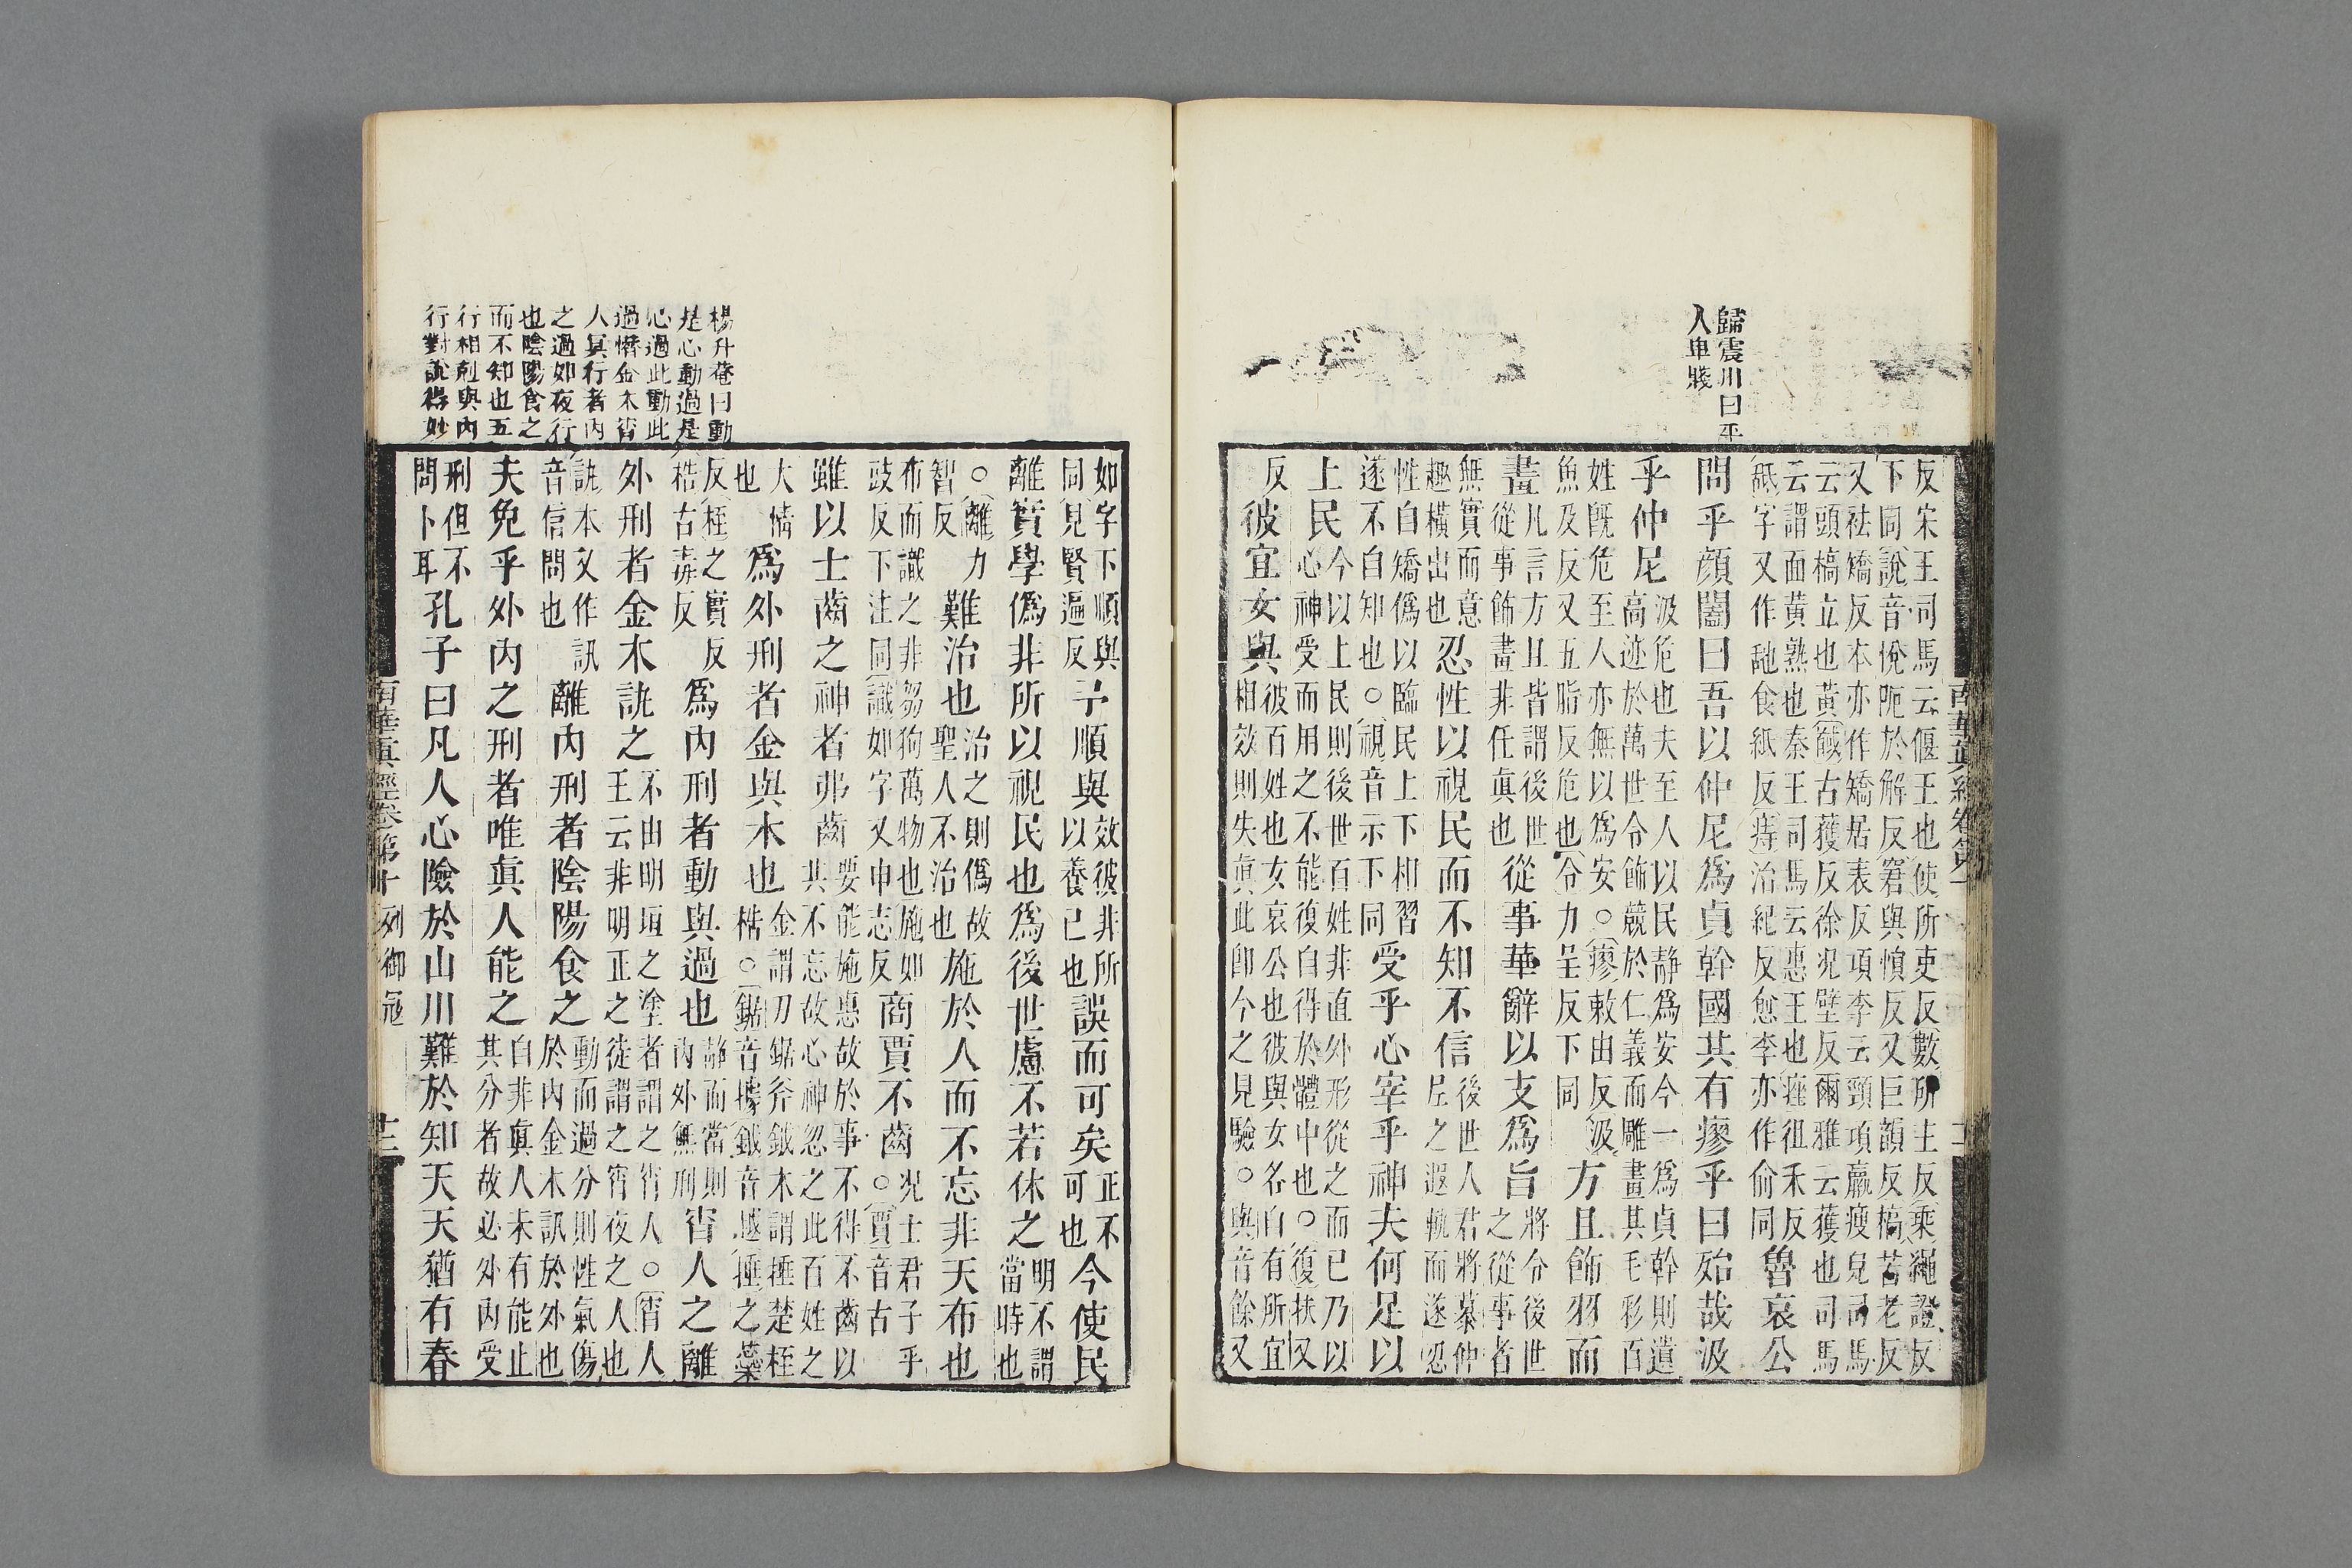 歸震川曰平
人卑賤
反宋王司馬云偃王也使所吏反數所主反乘繩證反
下同說音悅阨於解反窘與愼反又巨韻反槁苦老反
又袪矯反本亦作矯居表反項李云頸項羸瘦皃司馬
云頭槁立也黃馘古獲反徐况壁反爾雅云獲也司馬
云謂面黃熟也秦王司馬云惠王也痤徂禾反
字又作䑛食紙反痔治紀反愈李亦作偷同
魯哀公
問乎顏闔曰吾以仲尼爲貞幹國其有瘳乎曰殆哉汲
乎仲尼
汲危也夫至人以民静爲安今一爲貞幹則遺
高迹於萬世令飾競於仁義而雕畫其毛彩百
姓旣危至人亦無以爲安○瘳敕由反汲
魚及反又五脂反危也令力呈反下同
方且飾羽而
畫
凡言方且皆謂後世
從事飾畫非任眞也
從事華辭以支爲旨
將令後世
之從事者
無實而意
趣橫出也
忍性以視民而不知不信
後世人君將慕仲
尼之遐軌而遂忍
性自矯僞以臨民上下相習
遂不自知也○視音示下同
受乎心宰乎神夫何足以
上民
今以上民則後世百姓非直外形從之而已乃以
心神受而用之不能復自得於體中也○復扶又
反
彼宜女與
彼百姓也女哀公也彼與女各自有所宜
相效則失眞此卽今之見驗○與音餘又
南華眞經卷第十
楊升菴曰動
是心動過是
心過此動此
過憯金木宵
人冥行者內
之過如夜行
也陰陽食之
而不知也五
行相剋與內
行對說得妙
如字下順與
同見賢遍反
予順與
效彼非所
以養已也
誤而可矣
正不
可也
今使民
離實學僞非所以視民也爲後世慮不若休之
明不謂
當時也
○離力
智反
難治也
治之則僞故
聖人不治也
施於人而不忘非天布也
布而識之非芻狗萬物也施如
豉反下注同識如字又申志反
商賈不齒
况士君子乎
○賈音古
雖以士齒之神者弗齒
要能施惠故於事不得不齒以
其不忘故心神忽之此百姓之
大情
也
爲外刑者金與木也
金謂刀鋸斧鉞木謂捶楚桎
梏○鋸音據鉞音越捶之蘂
反桎之實反
梏古毒反
爲內刑者動與過也
静而當則
內外無刑
宵人之離
外刑者金木訊之
不由明垣之塗者謂之宵人○宵人
王云非明正之徒謂之宵夜之人也
訊本又作訊
音信問也
離內刑者陰陽食之
動而過分則性氣傷
於內金木訊於外也
夫免乎外內之刑者唯眞人能之
自非眞人未有能止
其分者故必外內受
刑但不
問卜耳
孔子曰凡人心險於山川難於知天天猶有春
南華眞經卷第十 列御寇